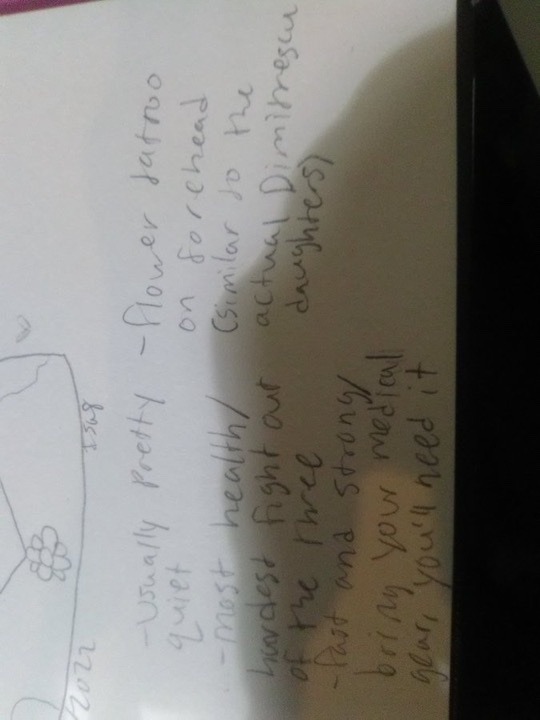 2022
-Usually pretty
quiet
-Most health/
hardest fight out
of the three
-Fast and strong/
bring your medical
gear, you'll need it
-flower tattoo
on forehead
(similar to the
actual Dimitrescu
daughters)